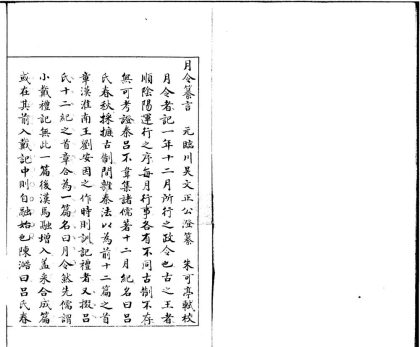 月令纂言　元臨川吳文正公澄纂　朱可亭軾校
月令者記一年十二月所行之政令也古之王者
順陰陽運行之序每月行事各有不同古制不存
無可考證秦呂不韋集諸儒著十二月紀名曰呂
氏春秋採摭古制間雜秦法以為前十二篇之首
章漢淮南王劉安因之作時則訓記禮者又掇呂
氏十二紀之首章合為一篇名曰月令然先儒謂
小戴禮記無此一篇後漢馬融增入蓋來合成篇
或在其前入戴記中則自融始也陳澔曰呂氏春